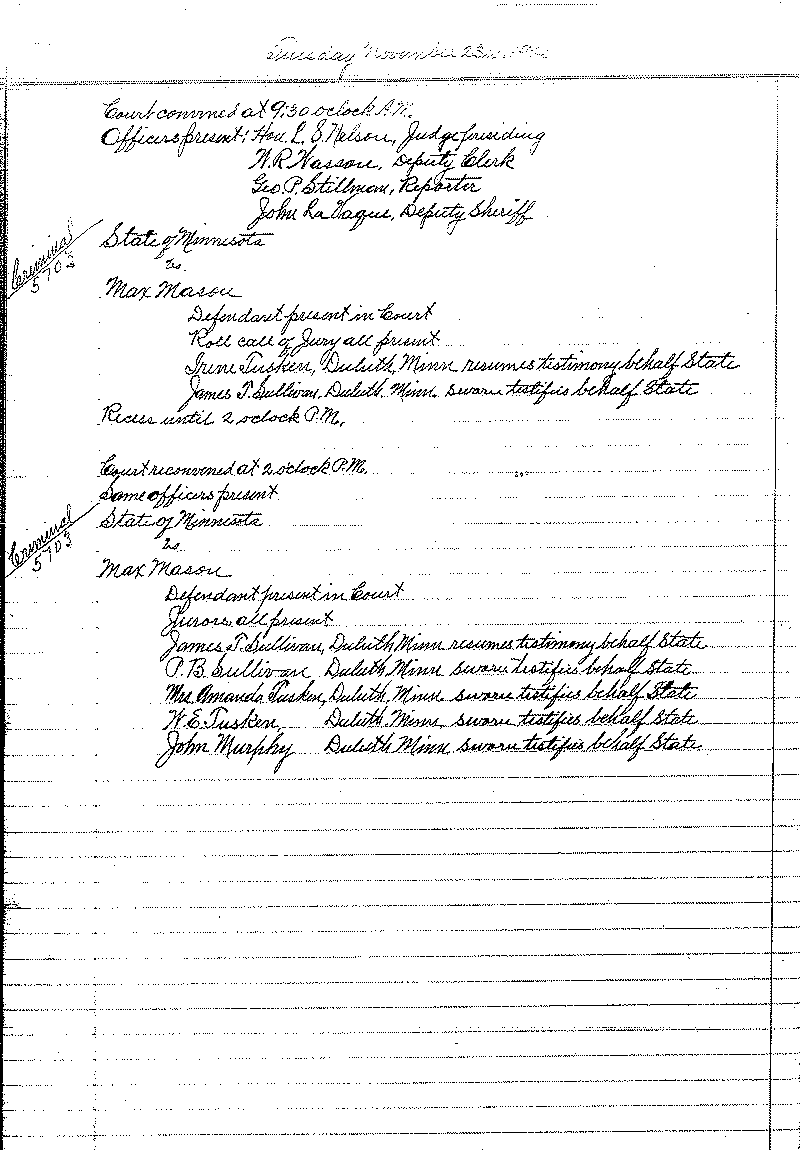 Tuesday November 23rd, 1920
Court convened at 9:30 oclock A.M.
Officers present: Hon. L. S. Nelson, Judge presiding
W. R. Wasson, Deputy Clerk
Geo. P. Stillman, Reporter
John La Vaque, Deputy Sheriff
Criminal
5703
State of Minnesota
vs.
Max Mason
Defendant present in Court
Roll call of Jury all present
Irene Tusken, Duluth, Minn resumes testimony behalf State
James T. Sullivan, Duluth, Minn. sworn testifies behalf State
Recess until 2 oclock P.M.
Court reconvened at 2 oclock P.M.
Same officers present
Criminal
5703
State of Minnesota
vs.
Max Mason
Defendant present in Court
Jurors all present
James T. Sullivan, Duluth Minn resumes testimony behalf State
P. B. Sullivan Duluth Minn sworn testifies behalf State
Mrs Amanda Tusken, Duluth, Minn sworn testifies behalf State
W. E. Tusken, Duluth, Minn sworn testifies behalf State
John Murphy Duluth Minn sworn testifies behalf State